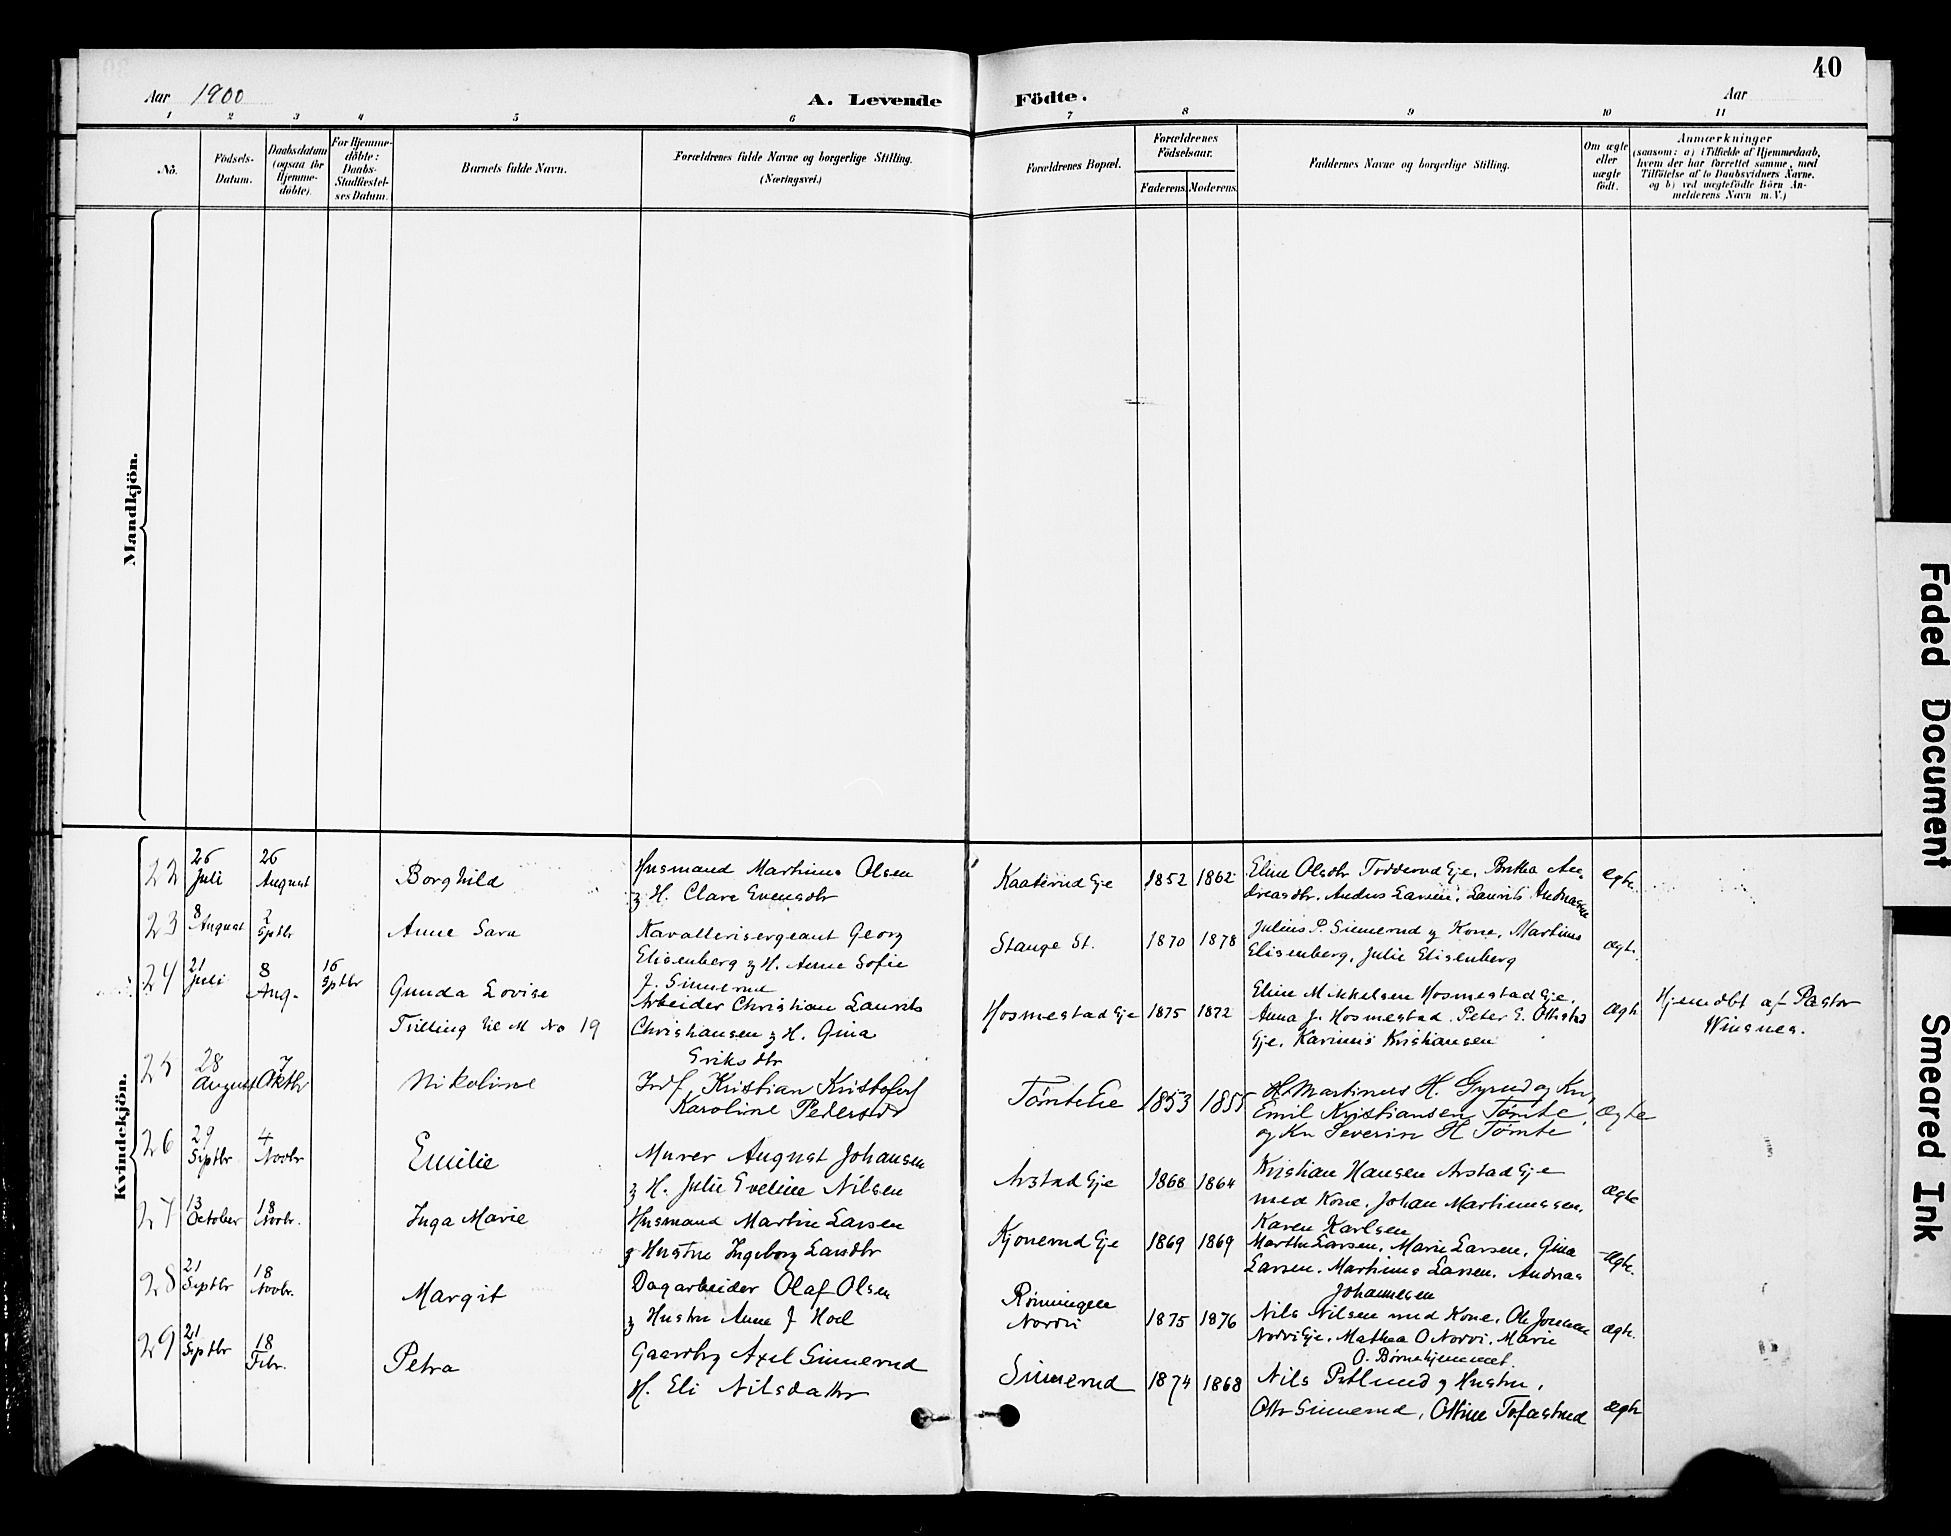 40
Aar 1900
A. Levende Födte.
Aar
1 2 3 4 5 6 7 8 9 10 11
No.
Födsels-
Datum.
Daabsdatum
(ogsaa for
Hjemme-
döbte).
For Hjemme-
döbte:
Daabs-
Stadfæstel-
ses Datum.
Barnets fulde Navn.
Forældrenes fulde Navne og borgerlige Stilling.
(Næringsvei.)
Forældrenes Bopæl.
Forældrenes
Födselsaar.
Faderens. Moderens.
Faddernes Navne og borgerlige Stilling.
Om ægte
eller
uægte
født.
Anmærkninger
(saasom: a) i Tilfælde af Hjemmedaab,
hvem der har forrettet samme, med
Tilföielse af to Daabsvidners Navne.
og b) ved uægtefödte Börn An-
melderens Navn m.V.)
Mandkjön.
Kvindekjön.
22 26 Juli 26 August Borghild
Husmand Martinus Olsen
& H. Clare Evensdtr
Kaaterud Eje 1852 1862
Eline Olsdtr Todderud Eje, Berthea An-
dreasdtr. Anders Larsen, Laurits Andreasen
ægte.
23 8 August 2 Sptbr Anne Sara
Kavallerisergeant Georg
Elisenberg & H. Anne Sofie
J. Sinnerud
Stange St. 1870 1878
Julius P. Sinnerud & Kone, Martinus
Elisenberg, Julie Elisenberg
ægt.
24 21 Juli 8 Aug. 16 Sptbr Gunda Lovise
Tvilling til M No 19
Arbeider Christian Laurits
Christiansen & H. Gina
Eriksdtr
Hosmestad Eje 1875 1872
Eline Mikkelsen Hosmestad Eje.
Anna J. Hosmestad. Peter E. Ottestad
Eje, Karinus Kristiansen
ægt.
Hjemdbt af Pastor
Winsnes.
25 28 August 7 Oktbr Nikoline
Indf. Kristian Kristofers
Karoline Pedersdr
Tømte Eie 1853 1855
H. Martinus H. Gyrud og Kn,
Emil Kristiansen Tømte,
og Kn Severin H Tømte
Ægte
26 29 Septbr 4 Novbr Emilie
Murer August Johansen
& H. Julie Eveline Nilsen
Arstad Eje 1868 1864
Kristian Hansen Arstad Eje
med Kone, Johan Martinussen,
Karen Karlsen
ægte
27 13 October 18 Novbr. Inga Marie
Husmand Martin Larsen
& Hustru Ingeborg Larsdtr
Kjonerud Eje 1869 1869
Marthe Larsen, Marie Larsen, Gina
Larsen, Martinus Larsen, Andreas
Johannesen
ægte.
28 21 Septbr 18 Novbr. Margit
Dagarbeider Olaf Olsen
& Hustru Anne J Hoel
Rønningen
Nordvi
1875 1876
Nils Nilsen med Kone, Ole Jonsen
Nordvi Eje, Mathea O Nordvi, Marie
O. Børnehjemmet.
ægte.
29 21 Septbr 18 Febr. Petra
Gaardbr Axel Sinnerud
H. Eli Nilsdatter
Sinnerud 1874 1868
Nils Petlund & Hustru,
Otto Sinnerud, Ottine Tofastrud
ægte
Faded Document
Smeared Ink